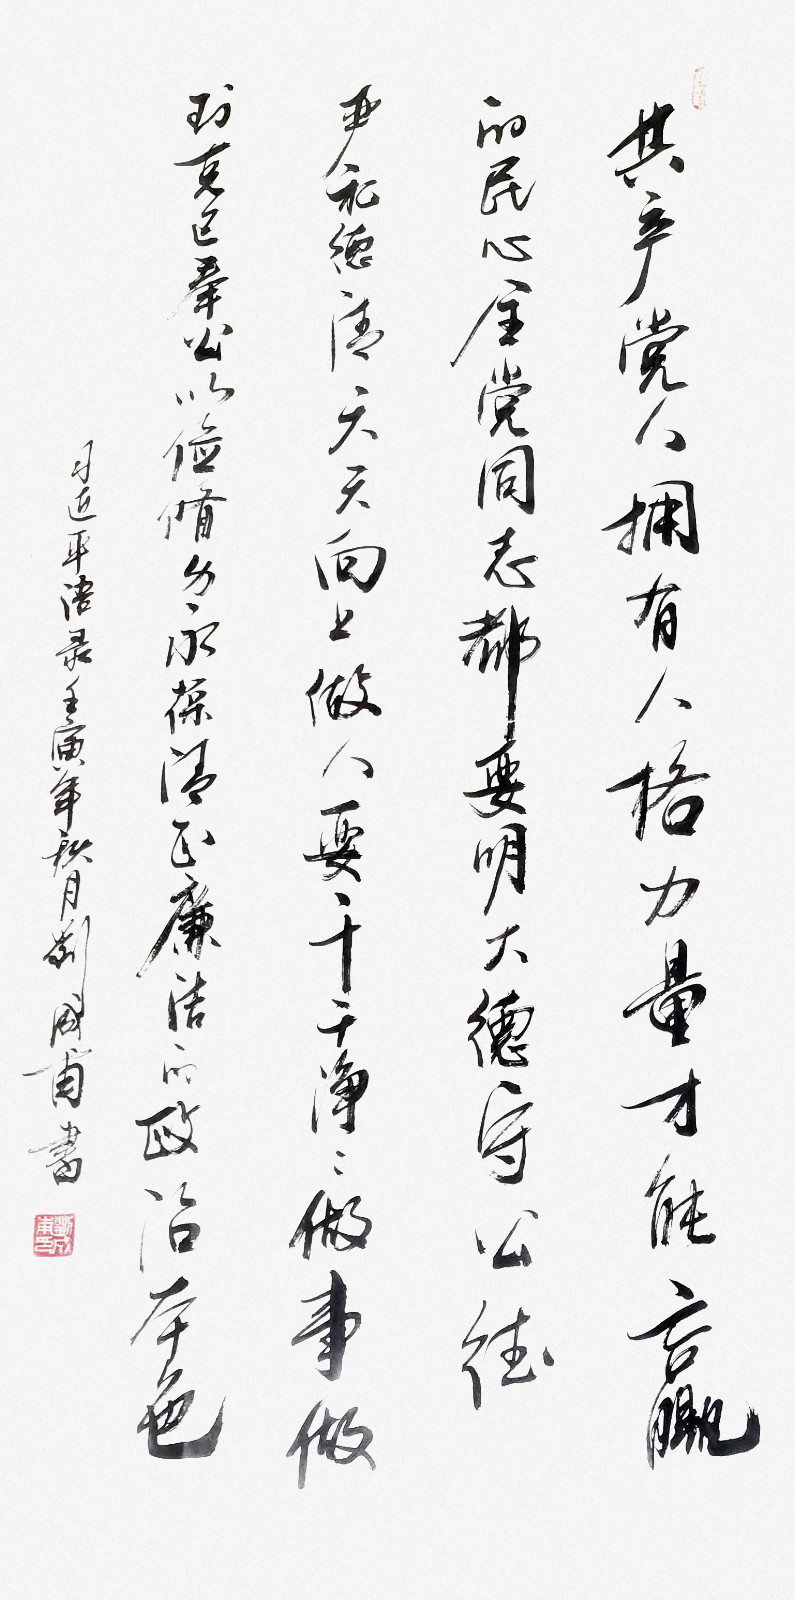 共产党人拥有人格力量才能赢
的民心全党同志都要明大德守公德
严私德清天天向上做人要干干净々做事做
到克己奉公以俭修身永葆清正廉洁的政治本色
习近平语录壬寅年秋月刘成甫书